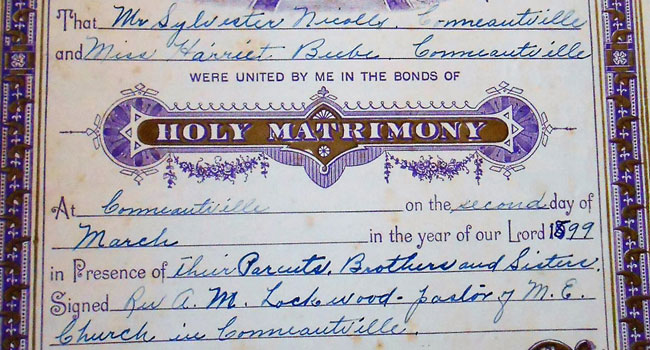 That Mr Sylvester Nicolls, Conneautville
and Miss Harriet Beebe Conneautville
WERE UNITED BY ME IN THE BONDS OF
HOLY MATRIMONY
At Conneautville on the second day of
March in the year of our Lord 1899
in Presence of Their Parents, Brothers and Sisters.
Signed Rev A. M. Lockwood - pastor of M. E.
Church in Conneautville.